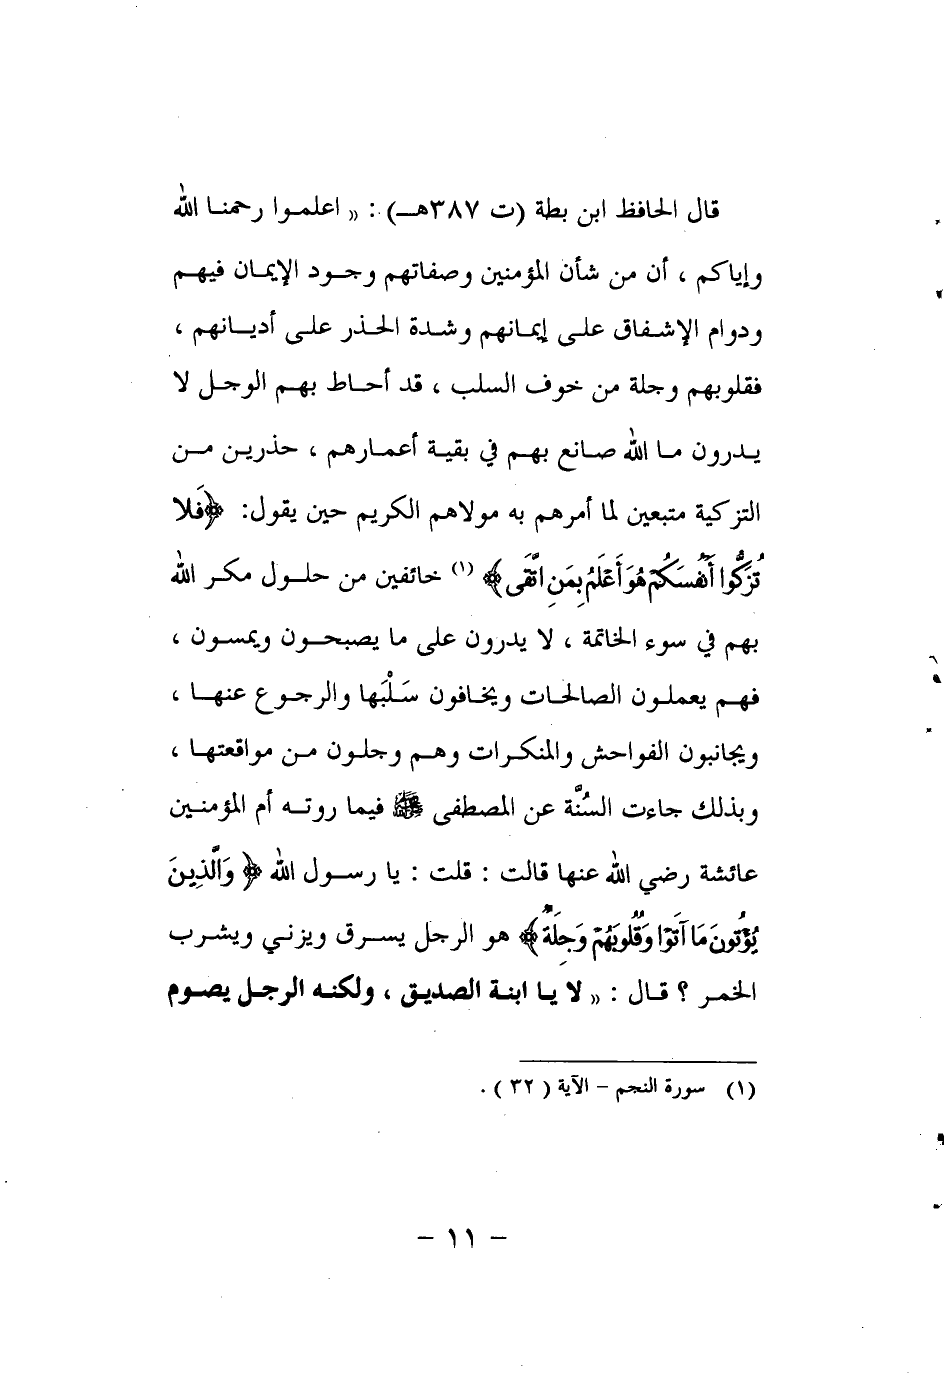 قال الحافظ ابن بطة (ت ٣٨٧هـ) : « اعلموا رحمنا الله
وإياكم ، أن من شأن المؤمنين وصفاتهم وجود الإيمان فيهم
ودوام الإشفاق على إيمانهم وشدة الحذر على أديانهم ،
فقلوبهم وجلة من خوف السلب ، قد أحاط بهم الوجل لا
يدرون ما الله صانع بهم في بقية أعمارهم ، حذرين من
التزكية متبعين لما أمرهم به مولاهم الكريم حين يقول: ﴿فَلا
تُزَكُّوا أَنْفُسَكُمْ هُوَ أَعْلَمُ بِمَنِ اتَّقَى﴾ (١) خائفين من حلول مكر الله
بهم في سوء الخاتمة ، لا يدرون على ما يصبحون ويمسون ،
فهم يعملون الصالحات ويخافون سَلْبَها والرجوع عنها ،
ويجانبون الفواحش والمنكرات وهم وجلون من مواقعتها ،
وبذلك جاءت السُنَّة عن المصطفى ﷺ فيما روته أم المؤمنين
عائشة رضي الله عنها قالت : قلت : يا رسول الله ﴿ وَالَّذِينَ
يُؤْتُونَ مَا آتَوْا وَقُلُوبُهُمْ وَجِلَةٌ﴾ هو الرجل يسرق ويزني ويشرب
الخمر ؟ قال : « لا يا ابنة الصديق ، ولكنه الرجل يصوم
(١) سورة النجم – الآية ( ٣٢ ) .
– ١١ –